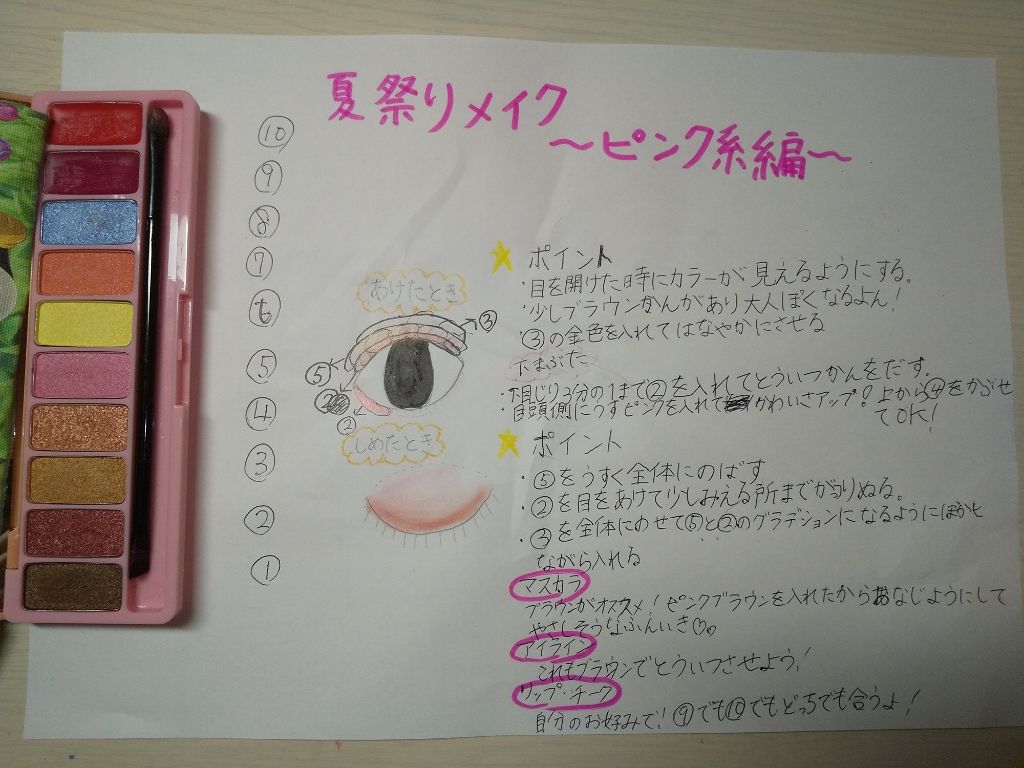 夏祭りメイク
～ピンク系編～
⑩
⑨
⑧
⑦
⑥
⑤
④
③
②
①
あけたとき
③
⑤
②
②
しめたとき
ポイント
・目を開けた時にカラーが見えるようにする。
・少しブラウンかんがあり大人ぽくなるよん!
・③の金色を入れてはなやかにさせる
下まぶた
・目じり3分の1まで②を入れてとういつかんをだす。
・目頭側にうすピンクを入れてかわいさアップ!上から④をかぶせ
てOK!
ポイント
・⑤をうすく全体にのばす
・②を目をあけて少しみえる所までがっりぬる。
・③を全体にのせて⑤と②のグラデションになるようにぼかし
ながら入れる
マスカラ
ブラウンがオススメ!ピンクブラウンを入れたからおなじようにして
やさしそうなふんいき♡。
アイライン
これもブラウンでとういつさせよう!
リップ・チーク
自分のお好みで!⑨でも⑩でもどっちでも合うよ!